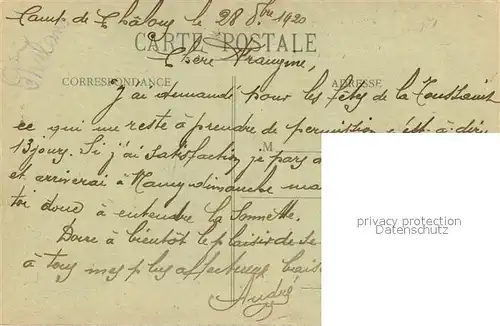 Camp de Châlons le 28 8bre 1920
CARTE POSTALE
Chère
CORRESPONDANCE
ADRESSE
J'ai demandé pour les fêtes de la Toussaint
ce qui me reste à prendre de permission c'est-à-dire
M
13 jours. Si j'ai satisfaction je pars
et arriverai à Nancy dimanche
toi donc à entendre la sonnette.
privacy protection
Datenschutz
Donc à bientôt le plaisir de se
à tous mes plus affectueux baisers
André